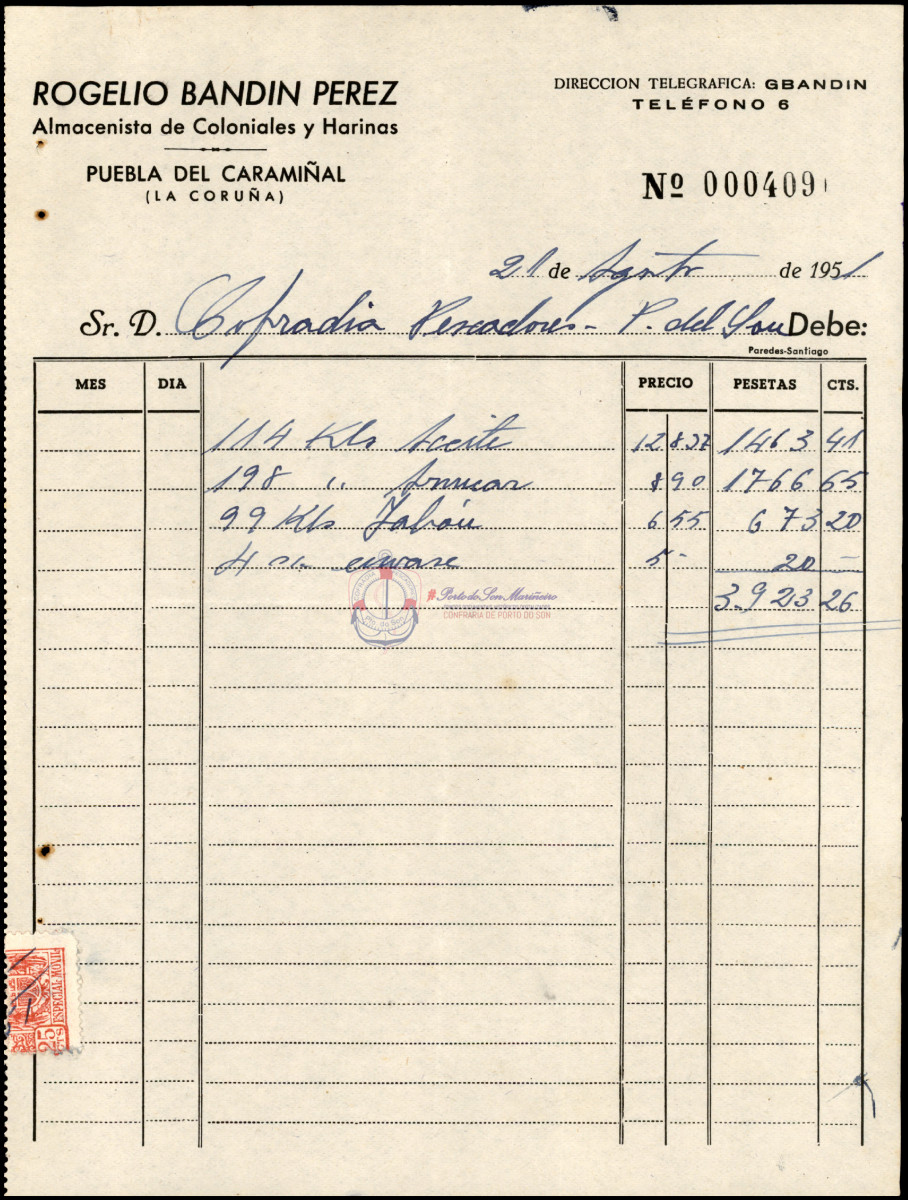 ROGELIO BANDIN PEREZ
Almacenista de Coloniales y Harinas
PUEBLA DEL CARAMIÑAL
(LA CORUÑA)
DIRECCION TELEGRAFICA: GBANDIN
TELÉFONO 6
Nº 000409
21 de Agosto de 1951
Sr. D. Cofradia Pescadores - P. del Son Debe:
Paredes-Santiago
MES DIA PRECIO PESETAS CTS.
114 Kls Aceite 12837 1463 41
198 " 890 1766 65
99 Kls Jabón 655 673 20
4 envase 5- 20 -
3.923 26
#Porto do Son Mariñeiro
CONFRARÍA DE PORTO DO SON
Pto. do Son
ESPECIAL MOVIL
25 CTS